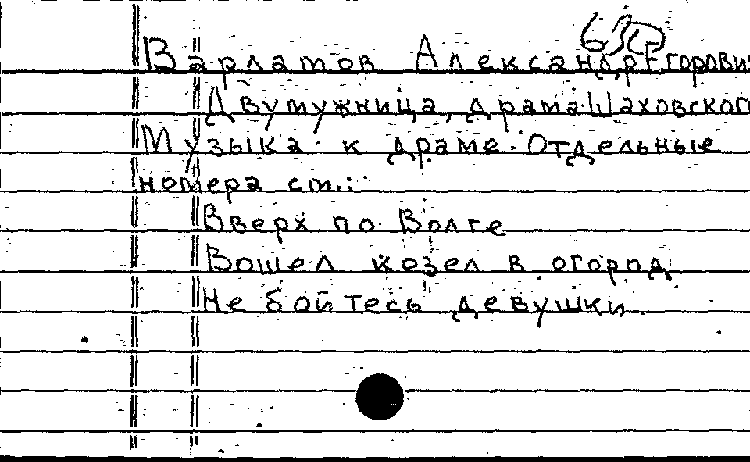 Варламов Александр Егорович
Двумужница, драма Шаховского
Музыка к драме. Отдельные
номера см.:
Вверх по Волге
Вошел козел в огород
Не бойтесь девушки.